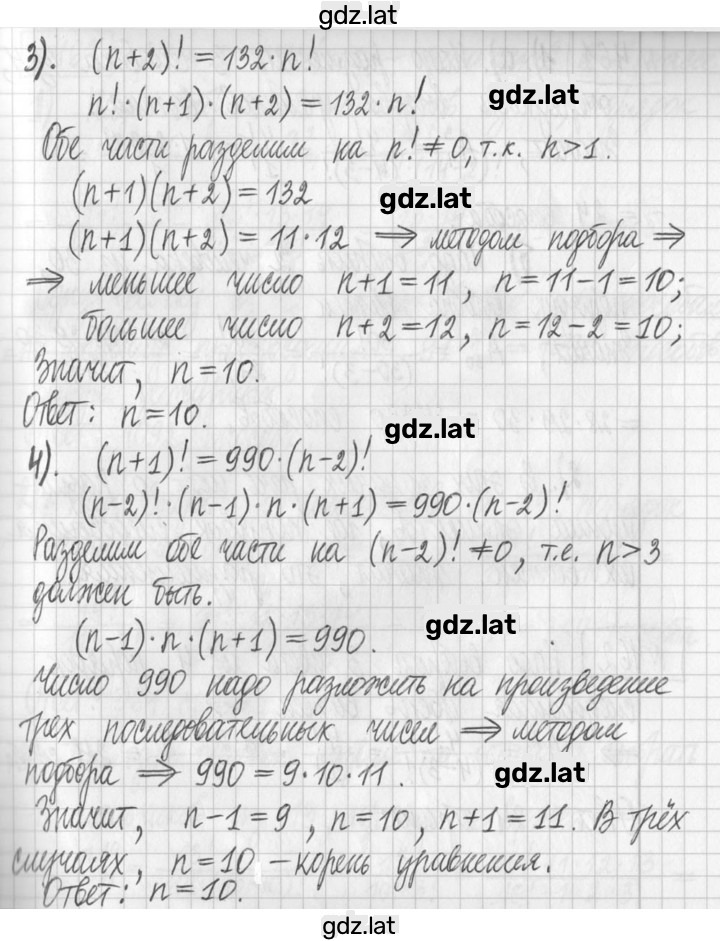 gdz.lat
3). (n+2)! = 132·n!
n!·(n+1)·(n+2) = 132·n! gdz.lat
Обе части разделим на n! ≠ 0, т.к. n>1.
(n+1)(n+2) = 132 gdz.lat
(n+1)(n+2) = 11·12 ⟹ методом подбора ⟹
⟹ меньшее число n+1 = 11, n = 11-1 = 10;
большее число n+2 = 12, n = 12-2 = 10;
Значит, n = 10.
Ответ: n = 10. gdz.lat
4). (n+1)! = 990·(n-2)!
(n-2)!·(n-1)·n·(n+1) = 990·(n-2)!
Разделим обе части на (n-2)! ≠ 0, т.е. n>3
должен быть.
(n-1)·n·(n+1) = 990. gdz.lat
Число 990 надо разложить на произведение
трех последовательных чисел ⟹ методом
подбора ⟹ 990 = 9·10·11. gdz.lat
Значит, n-1 = 9, n = 10, n+1 = 11. В трёх
случаях, n = 10 – корень уравнения.
Ответ: n = 10.
gdz.lat